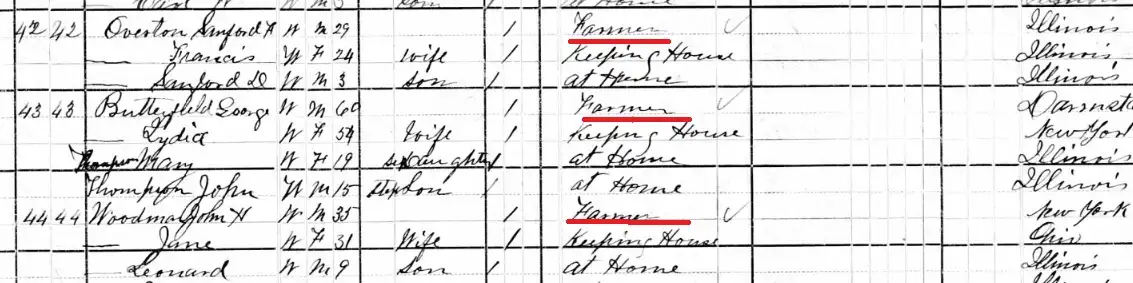 Son at Home
42 42 Overton Sanford H W M 29 / Farmer Illinois
— Francis W F 24 Wife / Keeping House Illinois
— Sanford D W M 3 Son / at Home Illinois
43 43 Butterfield George W M 60 / Farmer Darmsta
— Lydia W F 54 Wife / Keeping House New York
Thompson Mary W F 19 step Daughter / at Home Illinois
Thompson John W M 15 step Son / at Home Illinois
44 44 Woodma John H W M 35 / Farmer New York
— Jane W F 31 Wife / Keeping House Ohio
— Leonard W M 9 Son / at Home Illinois